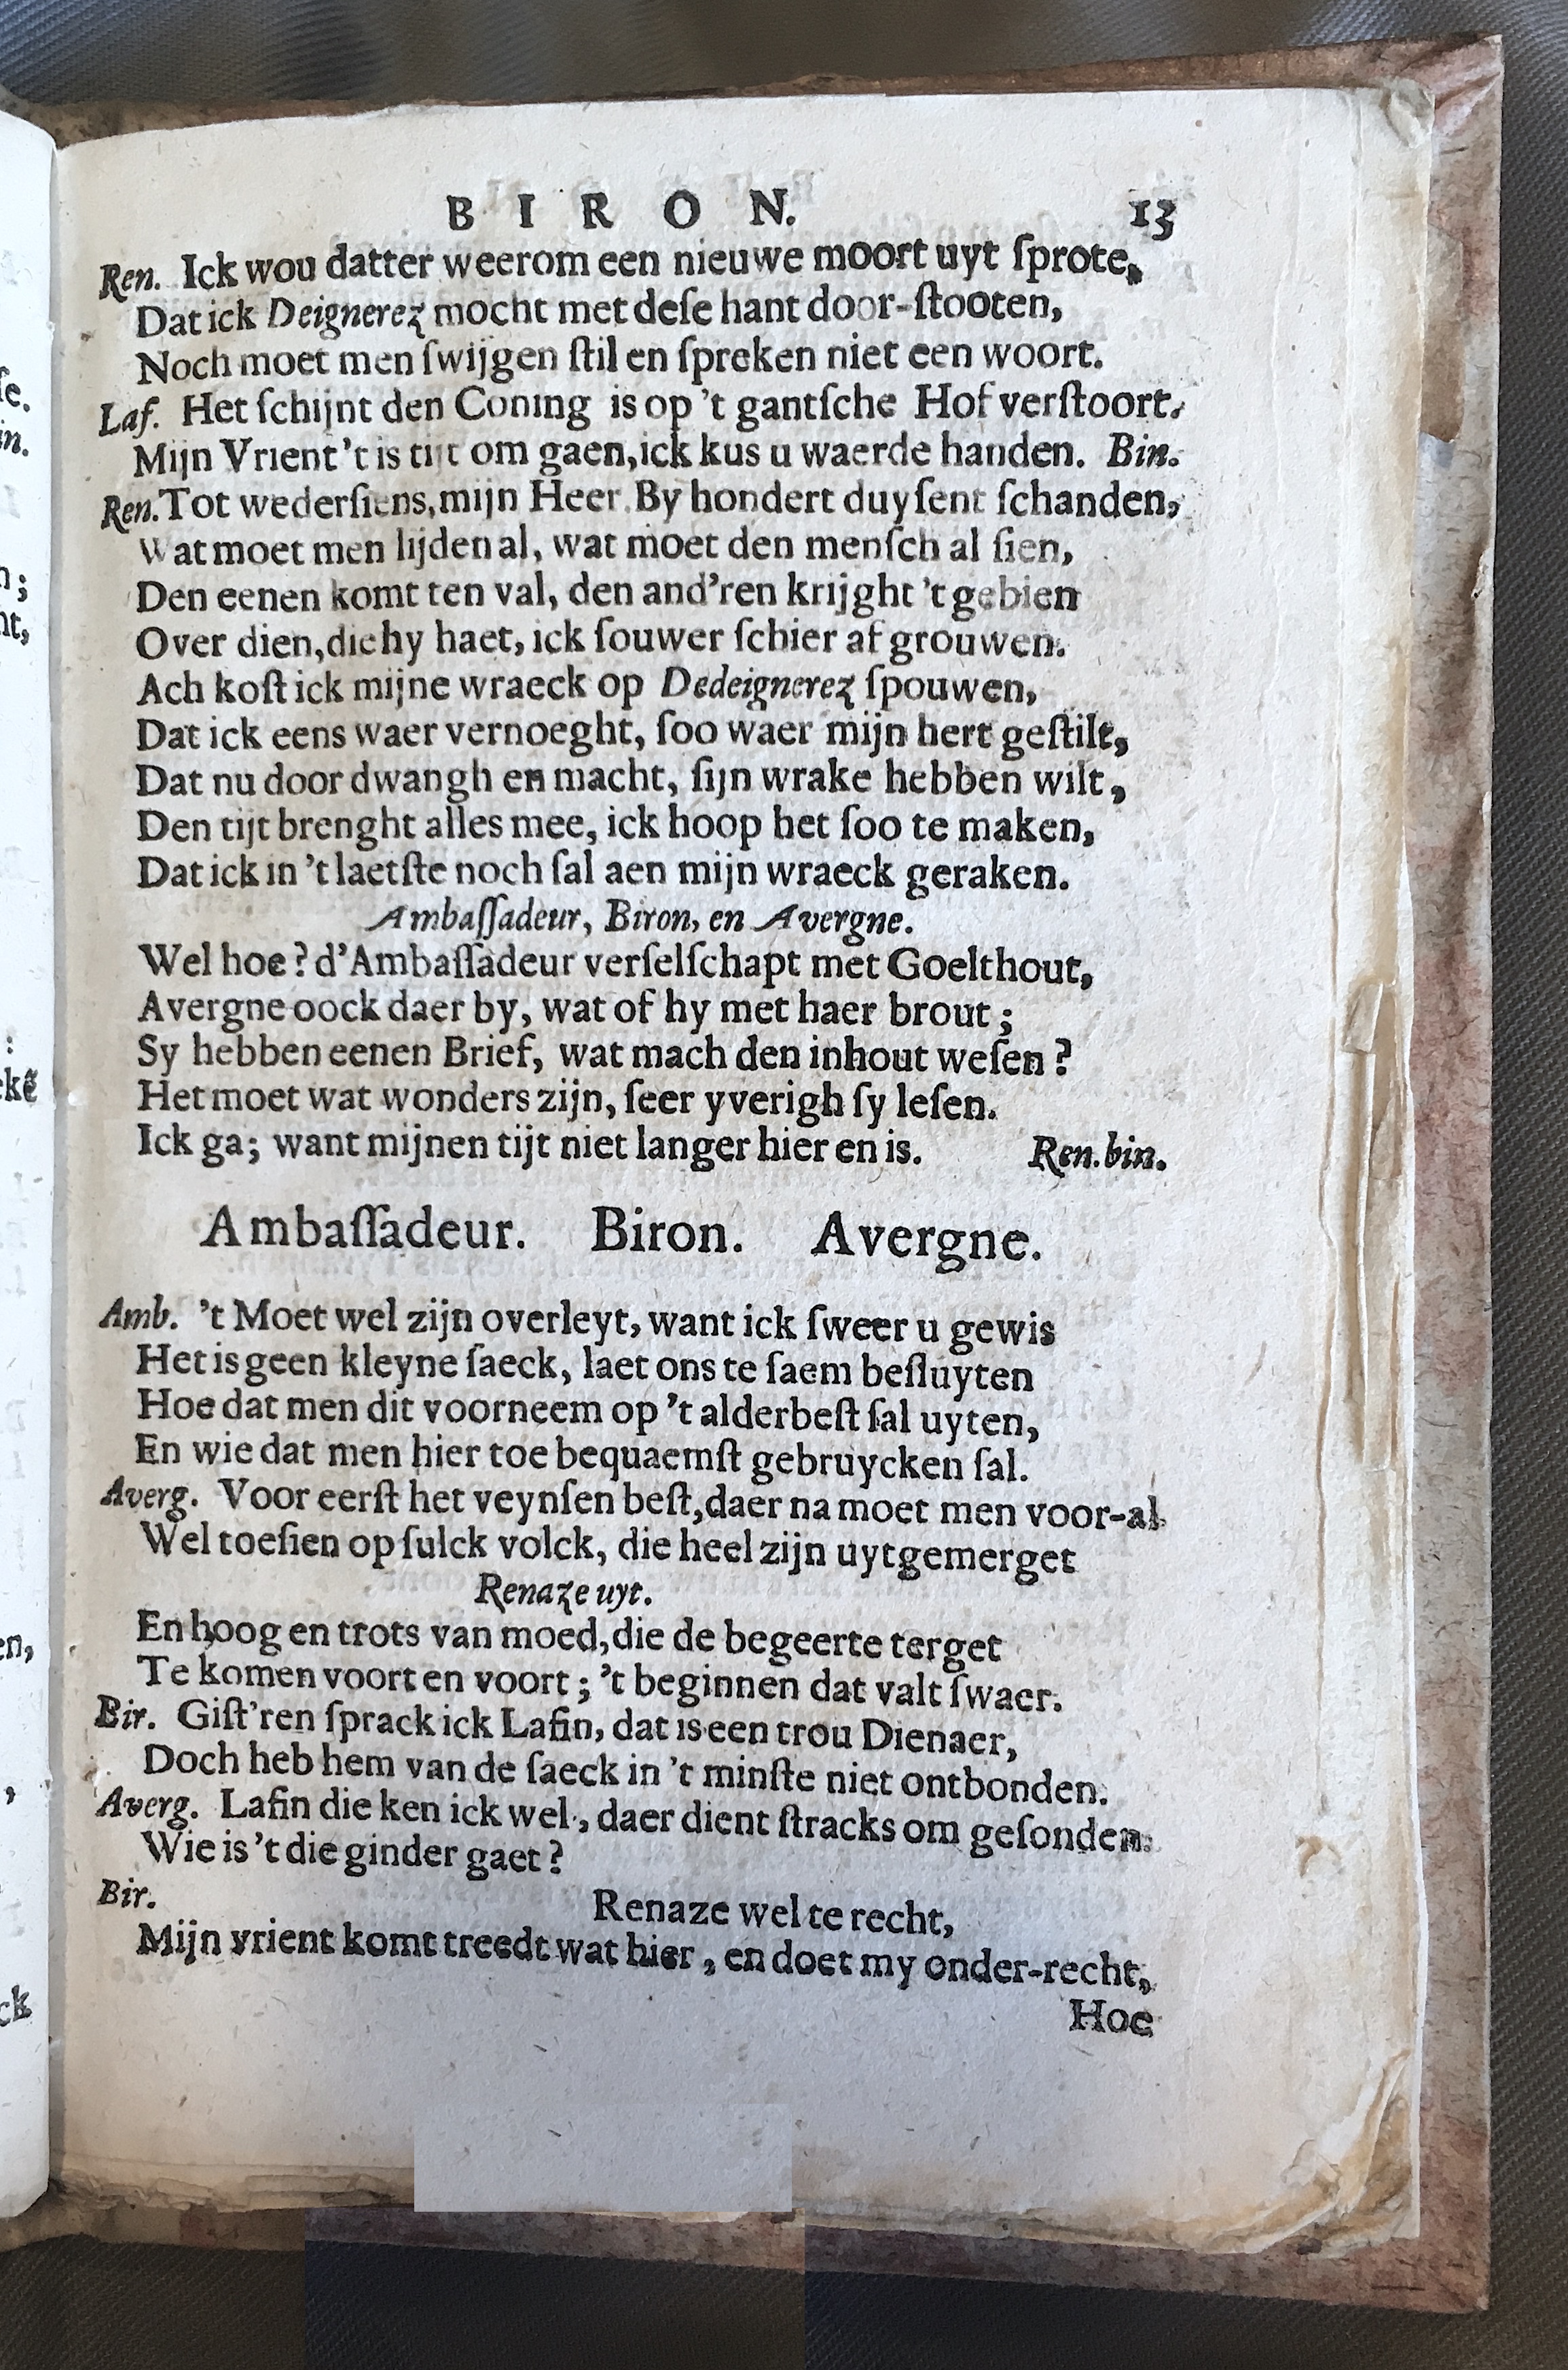 BIRON. 13
Ren. Ick wou datter weerom een nieuwe moort uyt ſprote,
Dat ick Deignerez mocht met deſe hant door-ſtooten,
Noch moet men ſwijgen ſtil en ſpreken niet een woort.
Laf. Het ſchijnt den Coning is op 't gantſche Hof verſtoort.
Mijn Vrient 't is tijt om gaen, ick kus u waerde handen. Bin.
Ren. Tot wederſiens, mijn Heer. By hondert duyſent ſchanden,
Wat moet men lijden al, wat moet den menſch al ſien,
Den eenen komt ten val, den and'ren krijght 't gebien
Over dien, die hy haet, ick ſouwer ſchier af grouwen.
Ach koſt ick mijne wraeck op Dedeignerez ſpouwen,
Dat ick eens waer vernoeght, ſoo waer mijn hert geſtilt,
Dat nu door dwangh en macht, ſijn wrake hebben wilt,
Den tijt brenght alles mee, ick hoop het ſoo te maken,
Dat ick in 't laetſte noch ſal aen mijn wraeck geraken.
Ambaſſadeur, Biron, en Avergne.
Wel hoe? d'Ambaſſadeur verſelſchapt met Goelthout,
Avergne oock daer by, wat of hy met haer brout;
Sy hebben eenen Brief, wat mach den inhout weſen?
Het moet wat wonders zijn, ſeer yverigh ſy leſen.
Ick ga; want mijnen tijt niet langer hier en is. Ren. bin.
Ambaſſadeur. Biron. Avergne.
Amb. 't Moet wel zijn overleyt, want ick ſweer u gewis
Het is geen kleyne ſaeck, laet ons te ſaem beſluyten
Hoe dat men dit voorneem op 't alderbeſt ſal uyten,
En wie dat men hier toe bequaemſt gebruycken ſal.
Averg. Voor eerſt het veynſen beſt, daer na moet men voor-al
Wel toeſien op ſulck volck, die heel zijn uytgemerget
Renaze uyt.
En hoog en trots van moed, die de begeerte terget
Te komen voort en voort; 't beginnen dat valt ſwaer.
Bir. Giſt'ren ſprack ick Lafin, dat is een trou Dienaer,
Doch heb hem van de ſaeck in 't minſte niet ontbonden.
Averg. Lafin die ken ick wel, daer dient ſtracks om geſonden.
Wie is 't die ginder gaet?
Bir. Renaze wel te recht,
Mijn vrient komt treedt wat hier, en doet my onder-recht,
Hoe
ſe.
in.
n;
nt,
:
ckẽ
en,
,
ck